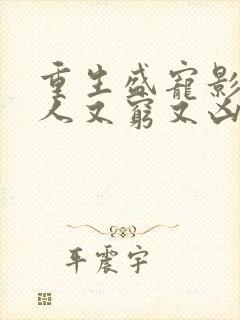 重生盛寵影
人又窮又凶
平震宇